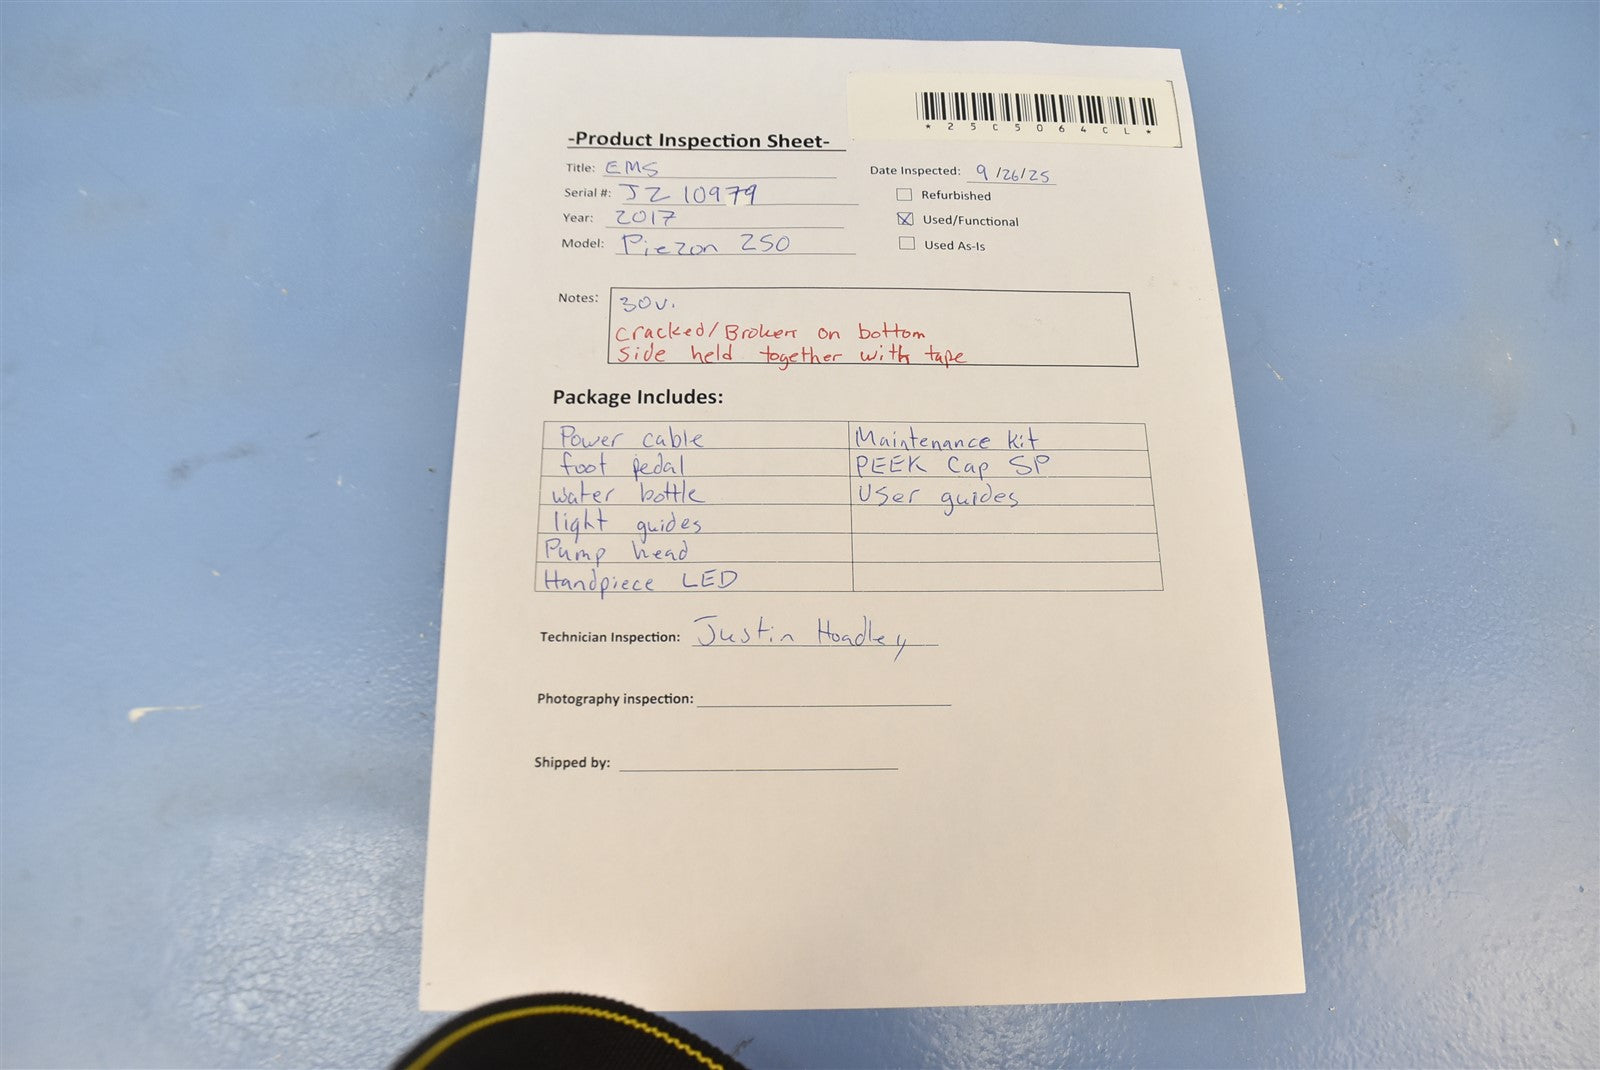 *25C5064CL*
-Product Inspection Sheet-
Title: EMS
Date Inspected: 9/26/25
Serial #: JZ 10979
Refurbished
Year: 2017
Used/Functional
Model: Piezon 250
Used As-Is
Notes: 30v.
Cracked/Broken on bottom
side held together with tape
Package Includes:
Power cable Maintenance kit
foot pedal PEEK Cap SP
water bottle User guides
light guides
Pump head
Handpiece LED
Technician Inspection: Justin Hoadley
Photography inspection:
Shipped by: